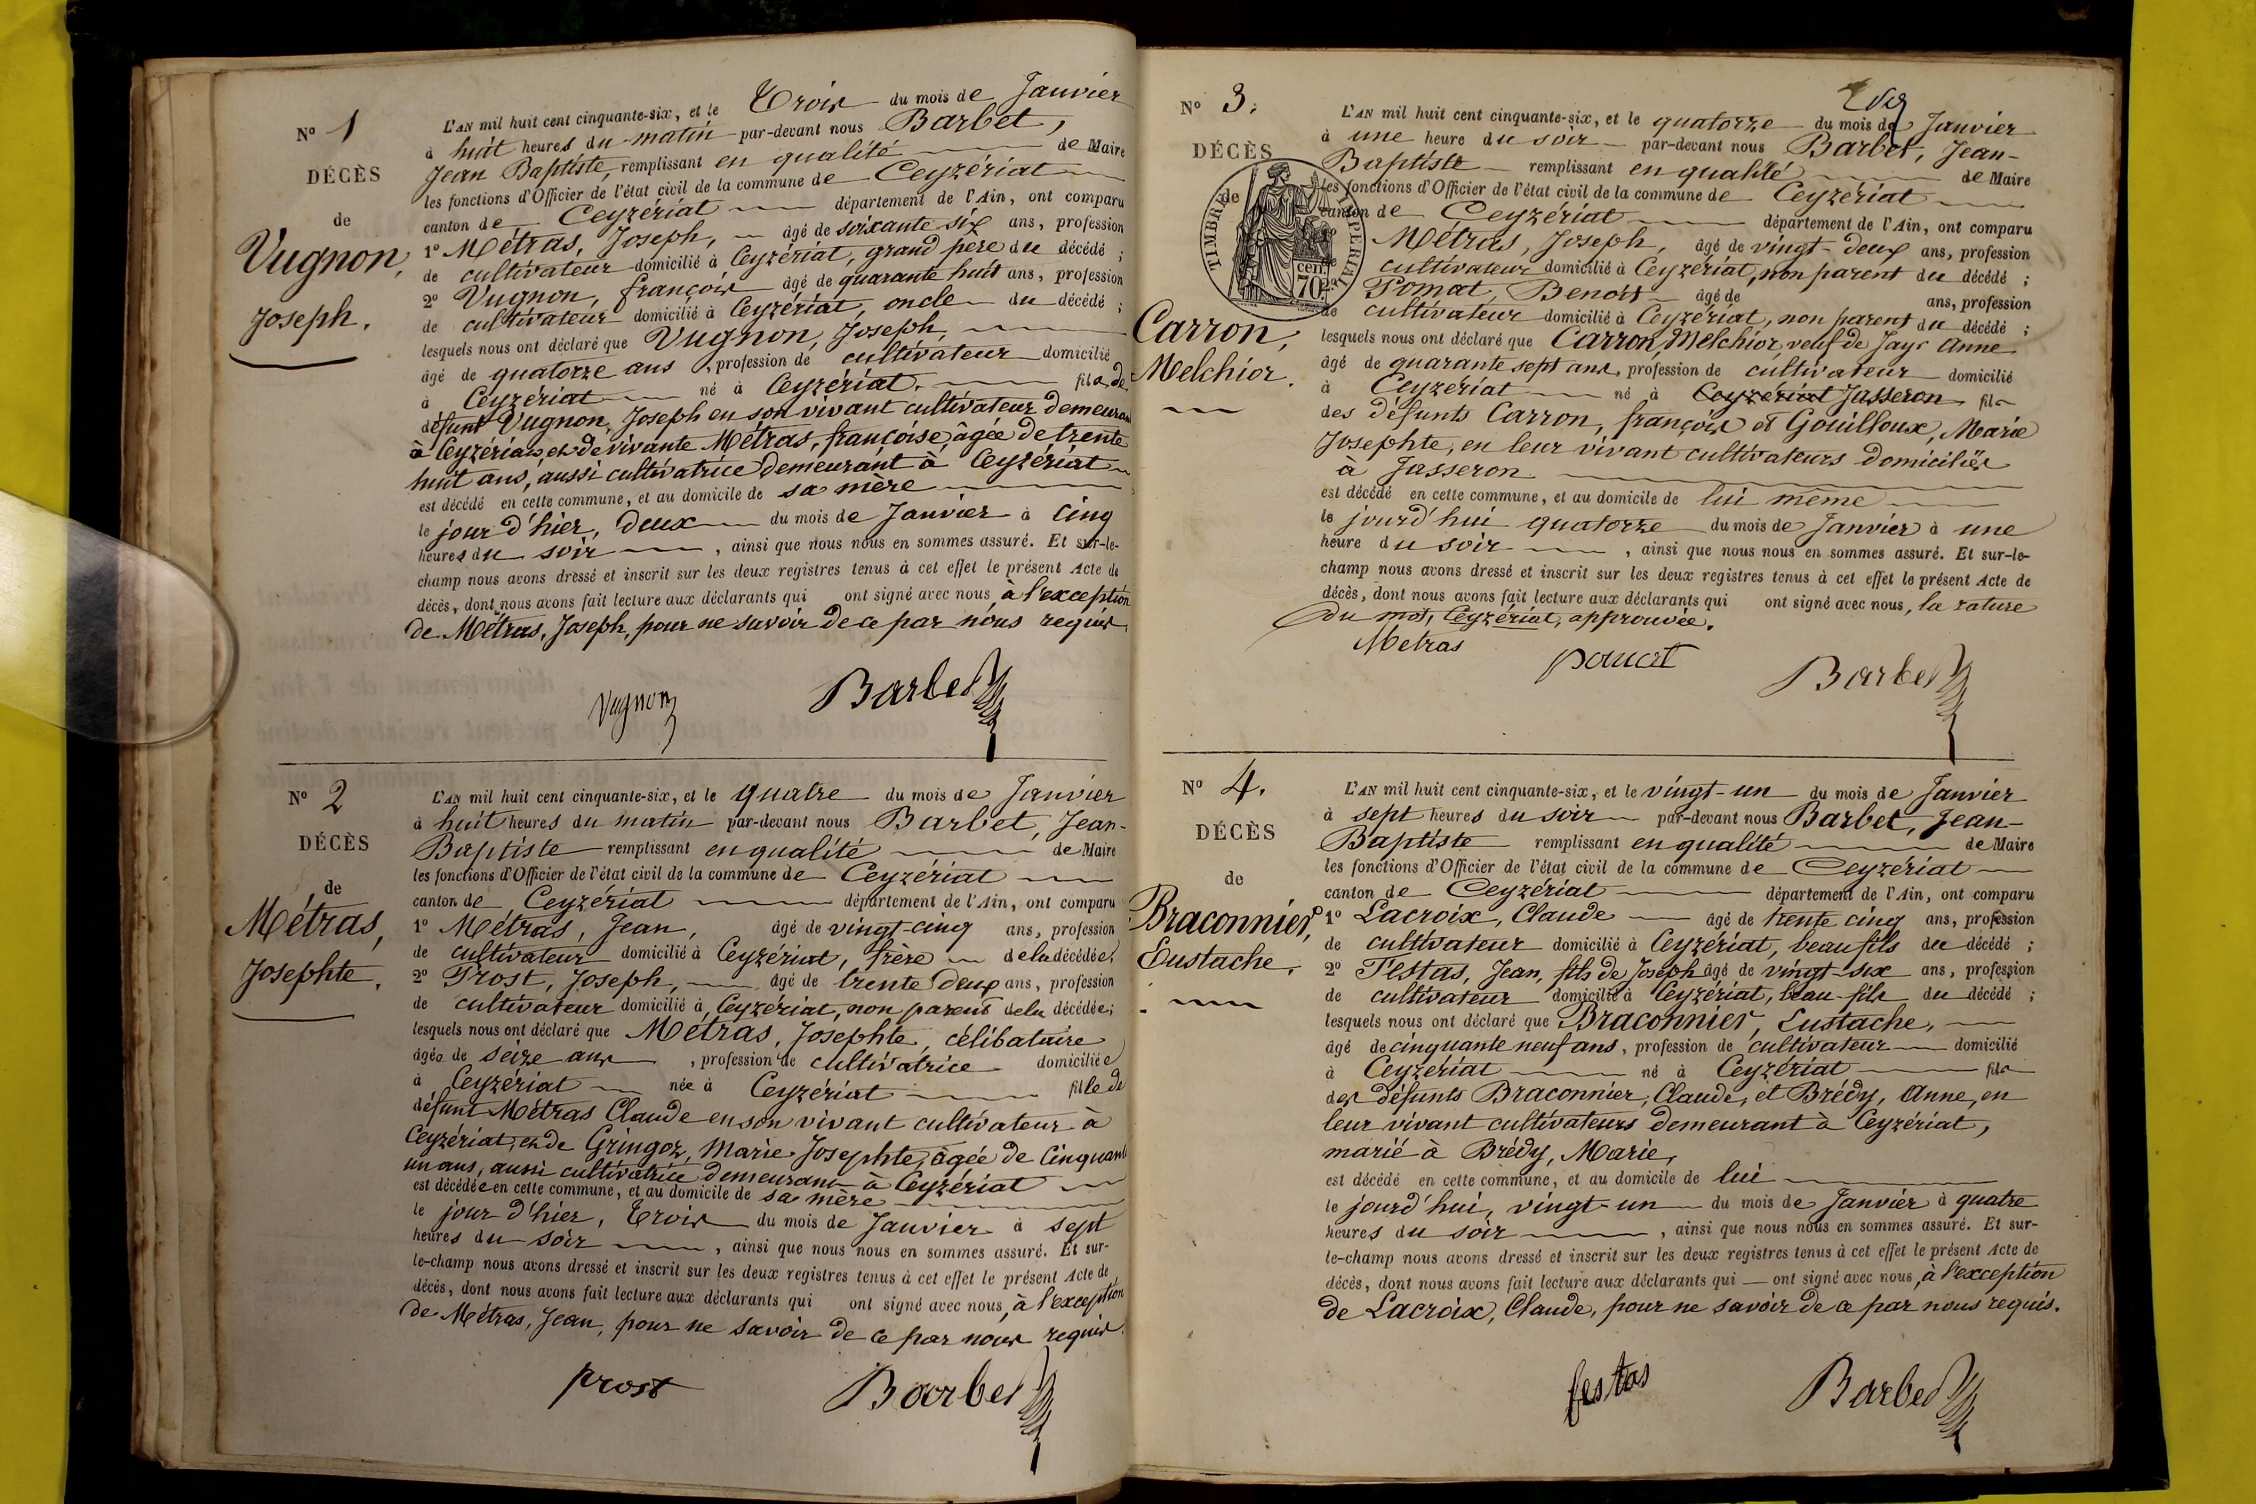 N° 1
DÉCÈS
de
Vugnon,
Joseph.
L'AN mil huit cent cinquante-six, et le Trois du mois de Janvier
à huit heures du matin par-devant nous Barbet,
Jean Baptiste, remplissant en qualité de Maire
les fonctions d'Officier de l'état civil de la commune de Ceyzériat
canton de Ceyzériat département de l'Ain, ont comparu
1° Métras, Joseph, âgé de soixante six ans, profession
de cultivateur domicilié à Ceyzériat, grand père du décédé ;
2° Vugnon, françois âgé de quarante huit ans, profession
de cultivateur domicilié à Ceyzériat, oncle du décédé ;
lesquels nous ont déclaré que Vugnon, Joseph,
âgé de quatorze ans, profession de cultivateur domicilié
à Ceyzériat né à Ceyzériat. fils de
défunt Vugnon, Joseph en son vivant cultivateur demeurant
à Ceyzériat, et de vivante Métras, françoise, âgée de trente
huit ans, aussi cultivatrice demeurant à Ceyzériat
est décédé en cette commune, et au domicile de sa mère
le jour d'hier, deux du mois de Janvier à cinq
heures du soir, ainsi que nous nous en sommes assuré. Et sur-le-
champ nous avons dressé et inscrit sur les deux registres tenus à cet effet le présent Acte de
décès, dont nous avons fait lecture aux déclarants qui ont signé avec nous à l'exception
de Métras, Joseph, pour ne savoir de ce par nous requis.
Vugnon
Barbet
N° 2
DÉCÈS
de
Métras,
Josephte.
L'AN mil huit cent cinquante-six, et le quatre du mois de Janvier
à huit heures du matin par-devant nous Barbet, Jean-
Baptiste remplissant en qualité de Maire
les fonctions d'Officier de l'état civil de la commune de Ceyzériat
canton de Ceyzériat département de l'Ain, ont comparu
1° Métras, Jean, âgé de vingt-cinq ans, profession
de cultivateur domicilié à Ceyzériat, frère de la décédée ;
2° Prost, Joseph, âgé de trente deux ans, profession
de cultivateur domicilié à Ceyzériat, non parent de la décédée ;
lesquels nous ont déclaré que Métras, Josephte, célibataire
âgée de seize ans, profession de cultivatrice domiciliée
à Ceyzériat née à Ceyzériat fille de
défunt Métras Claude en son vivant cultivateur à
Ceyzériat, et de Gringoz, Marie Josephte, âgée de cinquante
un ans, aussi cultivatrice demeurant à Ceyzériat
est décédée en cette commune, et au domicile de sa mère
le jour d'hier, Trois du mois de Janvier à sept
heures du soir, ainsi que nous nous en sommes assuré. Et sur-
le-champ nous avons dressé et inscrit sur les deux registres tenus à cet effet le présent Acte de
décès, dont nous avons fait lecture aux déclarants qui ont signé avec nous, à l'exception
de Métras, Jean, pour ne savoir de ce par nous requis.
prost
Barbet
N° 3.
DÉCÈS
de
TIMBRE IMPERIAL
70 cen.
Carron,
Melchior.
L'AN mil huit cent cinquante-six, et le quatorze du mois de Janvier
à une heure du soir par-devant nous Barbet, Jean-
Baptiste remplissant en qualité de Maire
les fonctions d'Officier de l'état civil de la commune de Ceyzériat
canton de Ceyzériat département de l'Ain, ont comparu
Métras, Joseph, âgé de vingt-deux ans, profession
de cultivateur domicilié à Ceyzériat, non parent du décédé ;
2° Pomat, Benoit âgé de ans, profession
de cultivateur domicilié à Ceyzériat, non parent du décédé ;
lesquels nous ont déclaré que Carron, Melchior, veuf de Jayr Anne
âgé de quarante sept ans, profession de cultivateur domicilié
à Ceyzériat né à Ceyzériat Jasseron fils
des défunts Carron, françois et Gouilloux, Marie
Josephte, en leur vivant cultivateurs domiciliés
à Jasseron
est décédé en cette commune, et au domicile de lui même
le jourd'hui quatorze du mois de Janvier à une
heure du soir, ainsi que nous nous en sommes assuré. Et sur-le-
champ nous avons dressé et inscrit sur les deux registres tenus à cet effet le présent Acte de
décès, dont nous avons fait lecture aux déclarants qui ont signé avec nous, la rature
du mot, Ceyzériat, approuvée.
Metras
Barbet
N° 4.
DÉCÈS
de
Braconnier,
Eustache.
L'AN mil huit cent cinquante-six, et le vingt-un du mois de Janvier
à sept heures du soir par-devant nous Barbet, Jean-
Baptiste remplissant en qualité de Maire
les fonctions d'Officier de l'état civil de la commune de Ceyzériat
canton de Ceyzériat département de l'Ain, ont comparu
1° Lacroix, Claude âgé de trente cinq ans, profession
de cultivateur domicilié à Ceyzériat, beau fils du décédé ;
2° Festas, Jean, fils de Joseph âgé de vingt-six ans, profession
de cultivateur domicilié à Ceyzériat, beau-fils du décédé ;
lesquels nous ont déclaré que Braconnier, Eustache,
âgé de cinquante neuf ans, profession de cultivateur domicilié
à Ceyzériat né à Ceyzériat fils
des défunts Braconnier, Claude, et Brédy, Anne, en
leur vivant cultivateurs demeurant à Ceyzériat,
marié à Brédy, Marie,
est décédé en cette commune, et au domicile de lui
le jourd'hui, vingt-un du mois de Janvier à quatre
heures du soir, ainsi que nous nous en sommes assuré. Et sur-
le-champ nous avons dressé et inscrit sur les deux registres tenus à cet effet le présent Acte de
décès, dont nous avons fait lecture aux déclarants qui ont signé avec nous, à l'exception
de Lacroix, Claude, pour ne savoir de ce par nous requis.
festas
Barbet